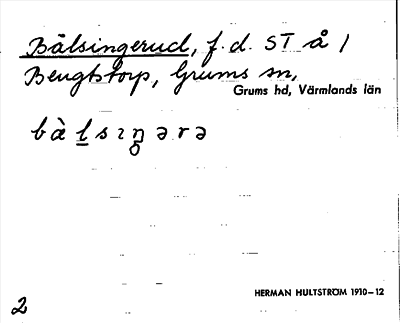 Bälsingerud, f. d. ST å /
Bengtstorp, Grums sn,
Grums hd, Värmlands län
bà l̲ s ı ŋ̥ ə r ə
HERMAN HULTSTRÖM 1910–12
2